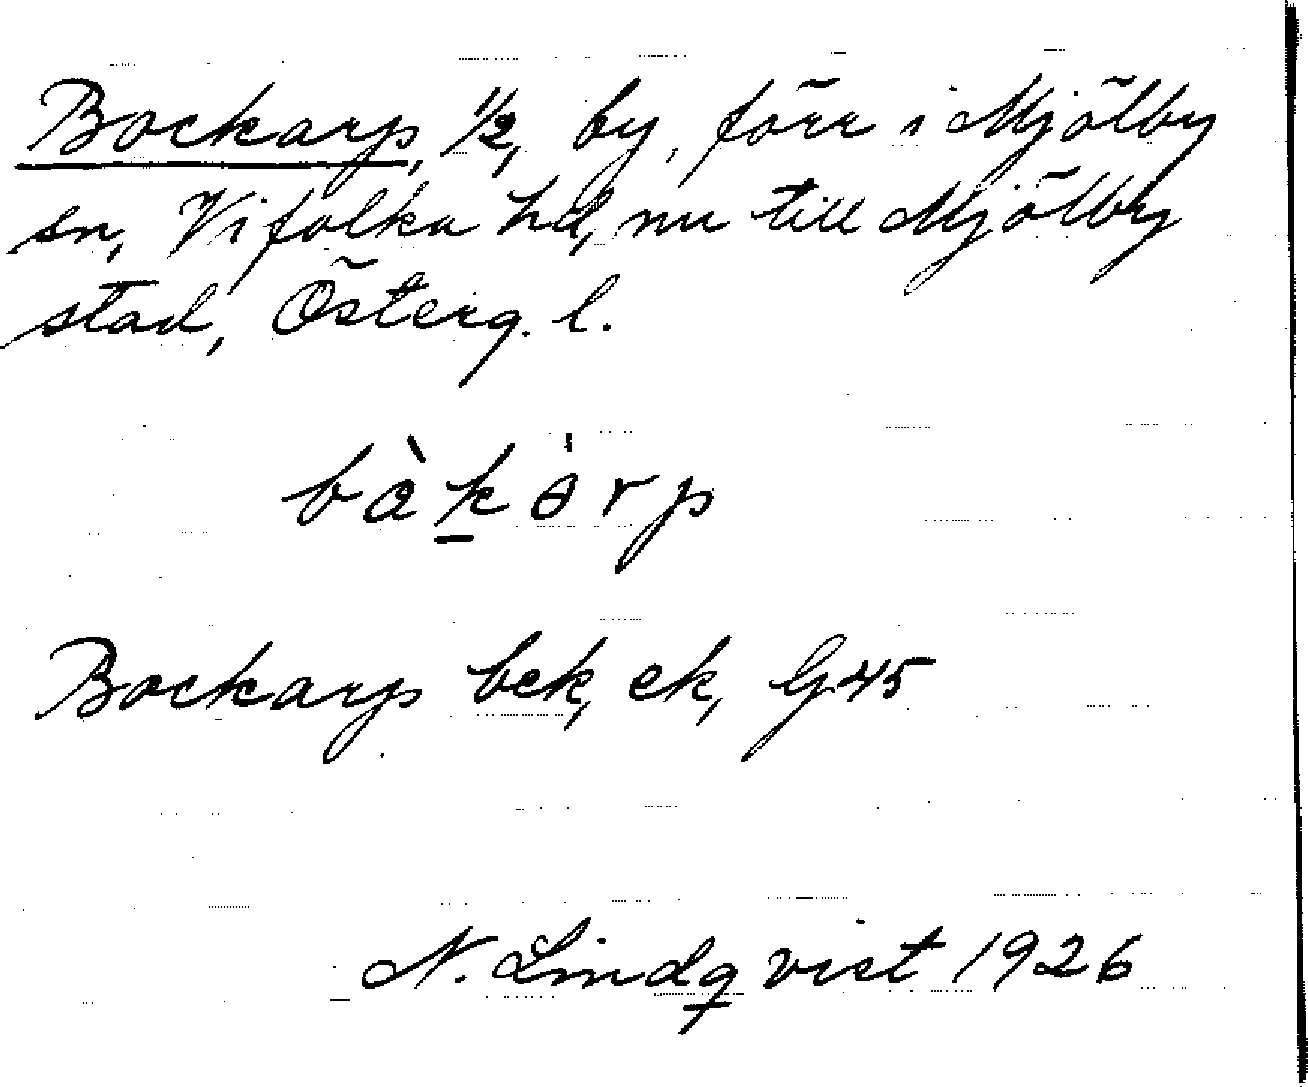 Bockarp, 1/2, by, förr i Mjölby
sn, Vifolka hd, nu till Mjölby
stad, Österg. l.
bàkàrp
Bockarp bek, ek, G45
N. Lindqvist 1926